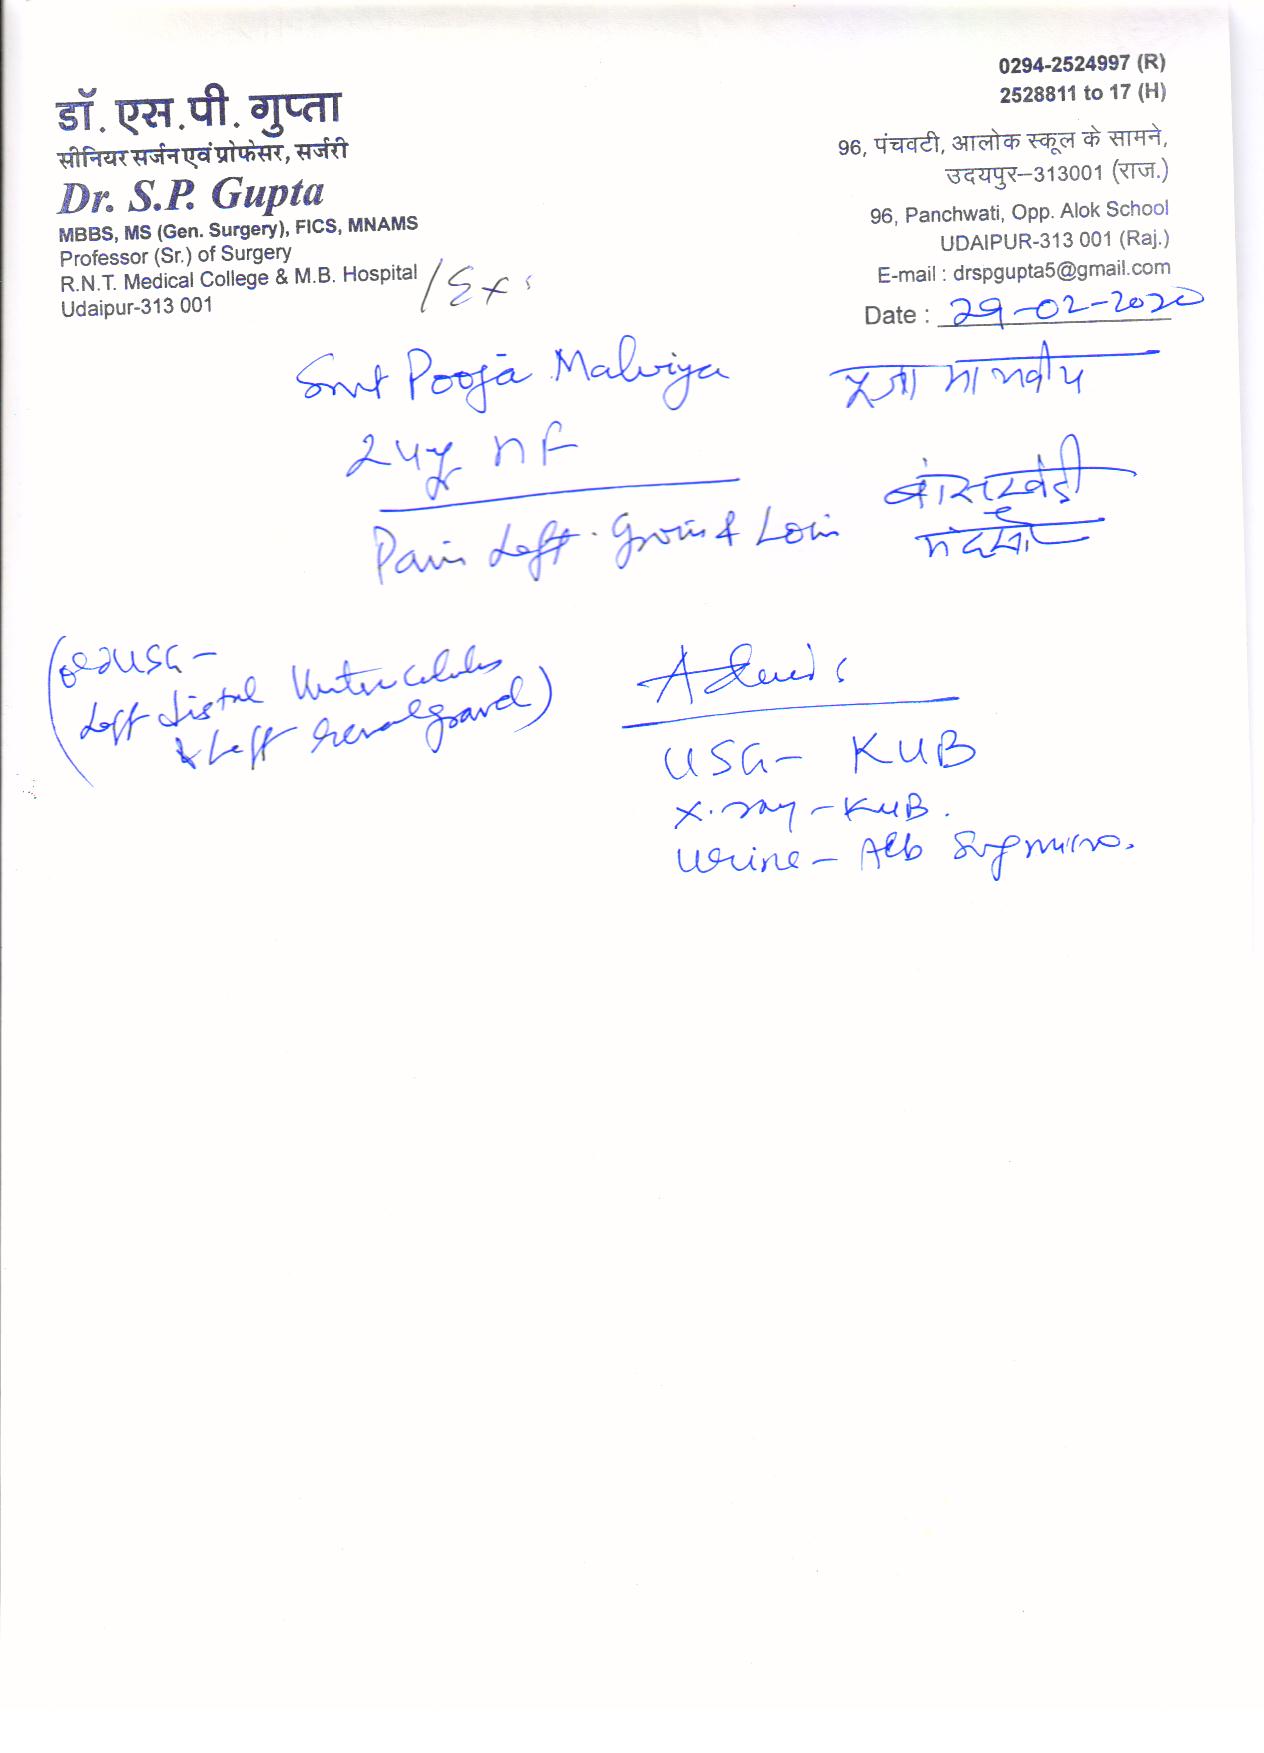 डॉ. एस.पी. गुप्ता
सीनियर सर्जन एवं प्रोफेसर, सर्जरी
Dr. S.P. Gupta
MBBS, MS (Gen. Surgery), FICS, MNAMS
Professor (Sr.) of Surgery
R.N.T. Medical College & M.B. Hospital /Ex
Udaipur-313 001
0294-2524997 (R)
2528811 to 17 (H)
96, पंचवटी, आलोक स्कूल के सामने,
उदयपुर–313001 (राज.)
96, Panchwati, Opp. Alok School
UDAIPUR-313 001 (Raj.)
E-mail : drspgupta5@gmail.com
Date : 29-02-2020
Smt Pooja Malviya
पूजा मालवीय
24y
Pain Left Groin & Loin
USG-
Left distal
& Left renal gravel)
USG- KUB
X-ray - KUB.
Urine - Alb Sug micro.